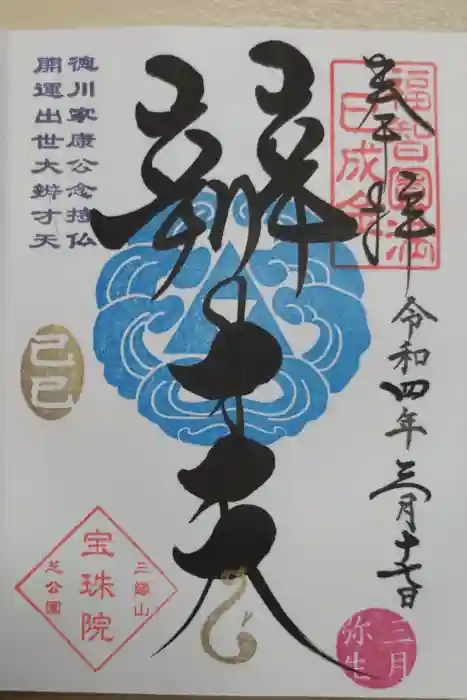 福智圓満
巳成金
奉拝
令和四年三月十七日
辨才天
徳川家康公念持仏
開運出世大辨才天
己巳
三縁山
宝珠院
芝公園
三月
弥生